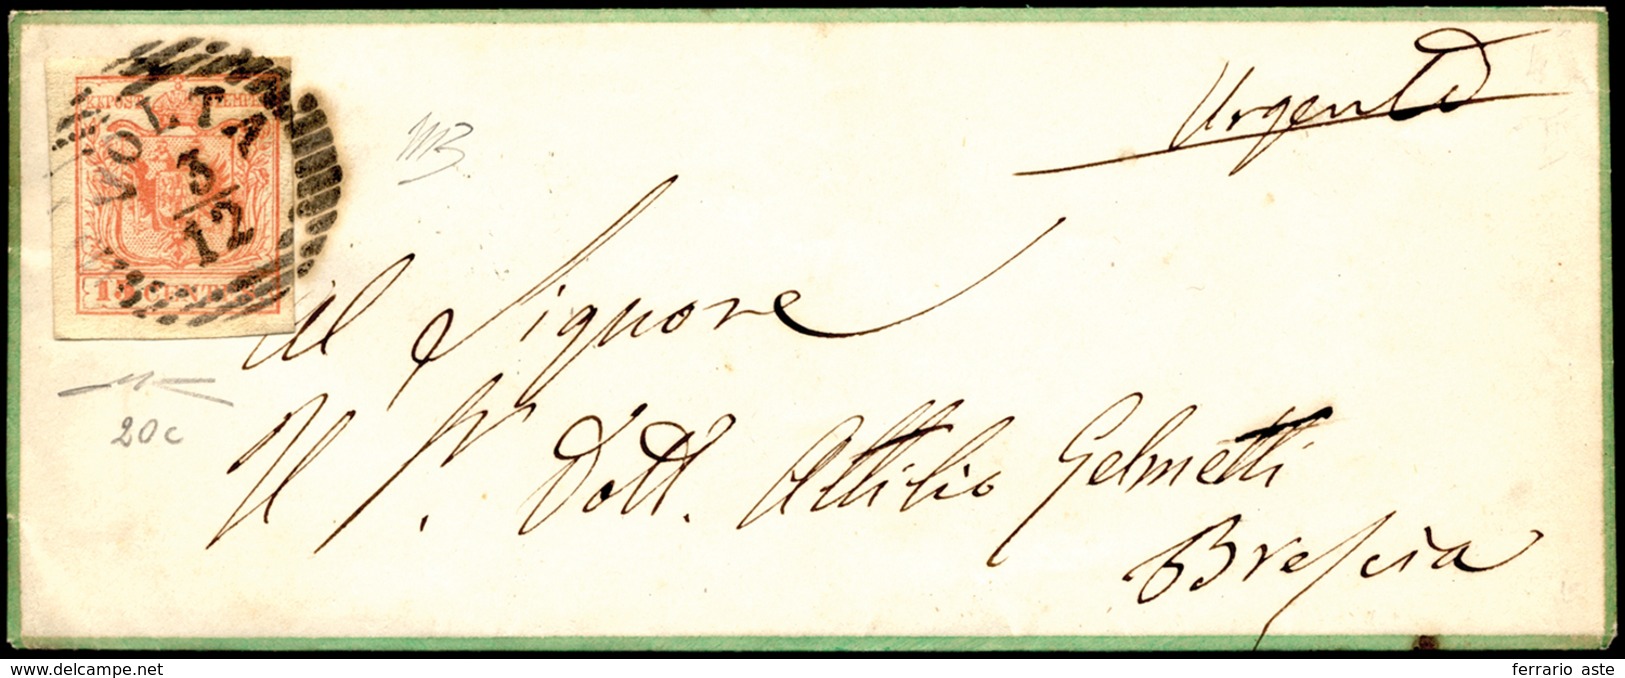 KKPOST STEMPEL
VOLTA
3/12
15 CENTES
Urgente
Al Signore
Il Sr. Dott. Attilio Gelmetti
Brescia
20c
www.delcampe.net
ferrario aste